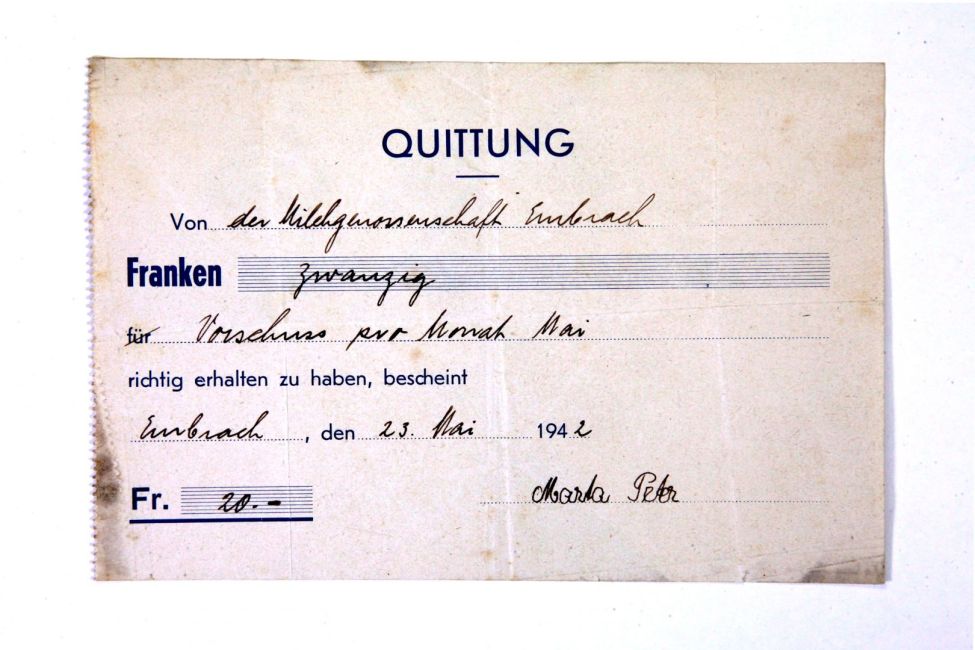 QUITTUNG
Von der Milchgenossenschaft Embrach
Franken zwanzig
für Vorschuss pro Monat Mai
richtig erhalten zu haben, bescheint
Embrach, den 23. Mai 1942
Fr. 20.-
Marta Petr